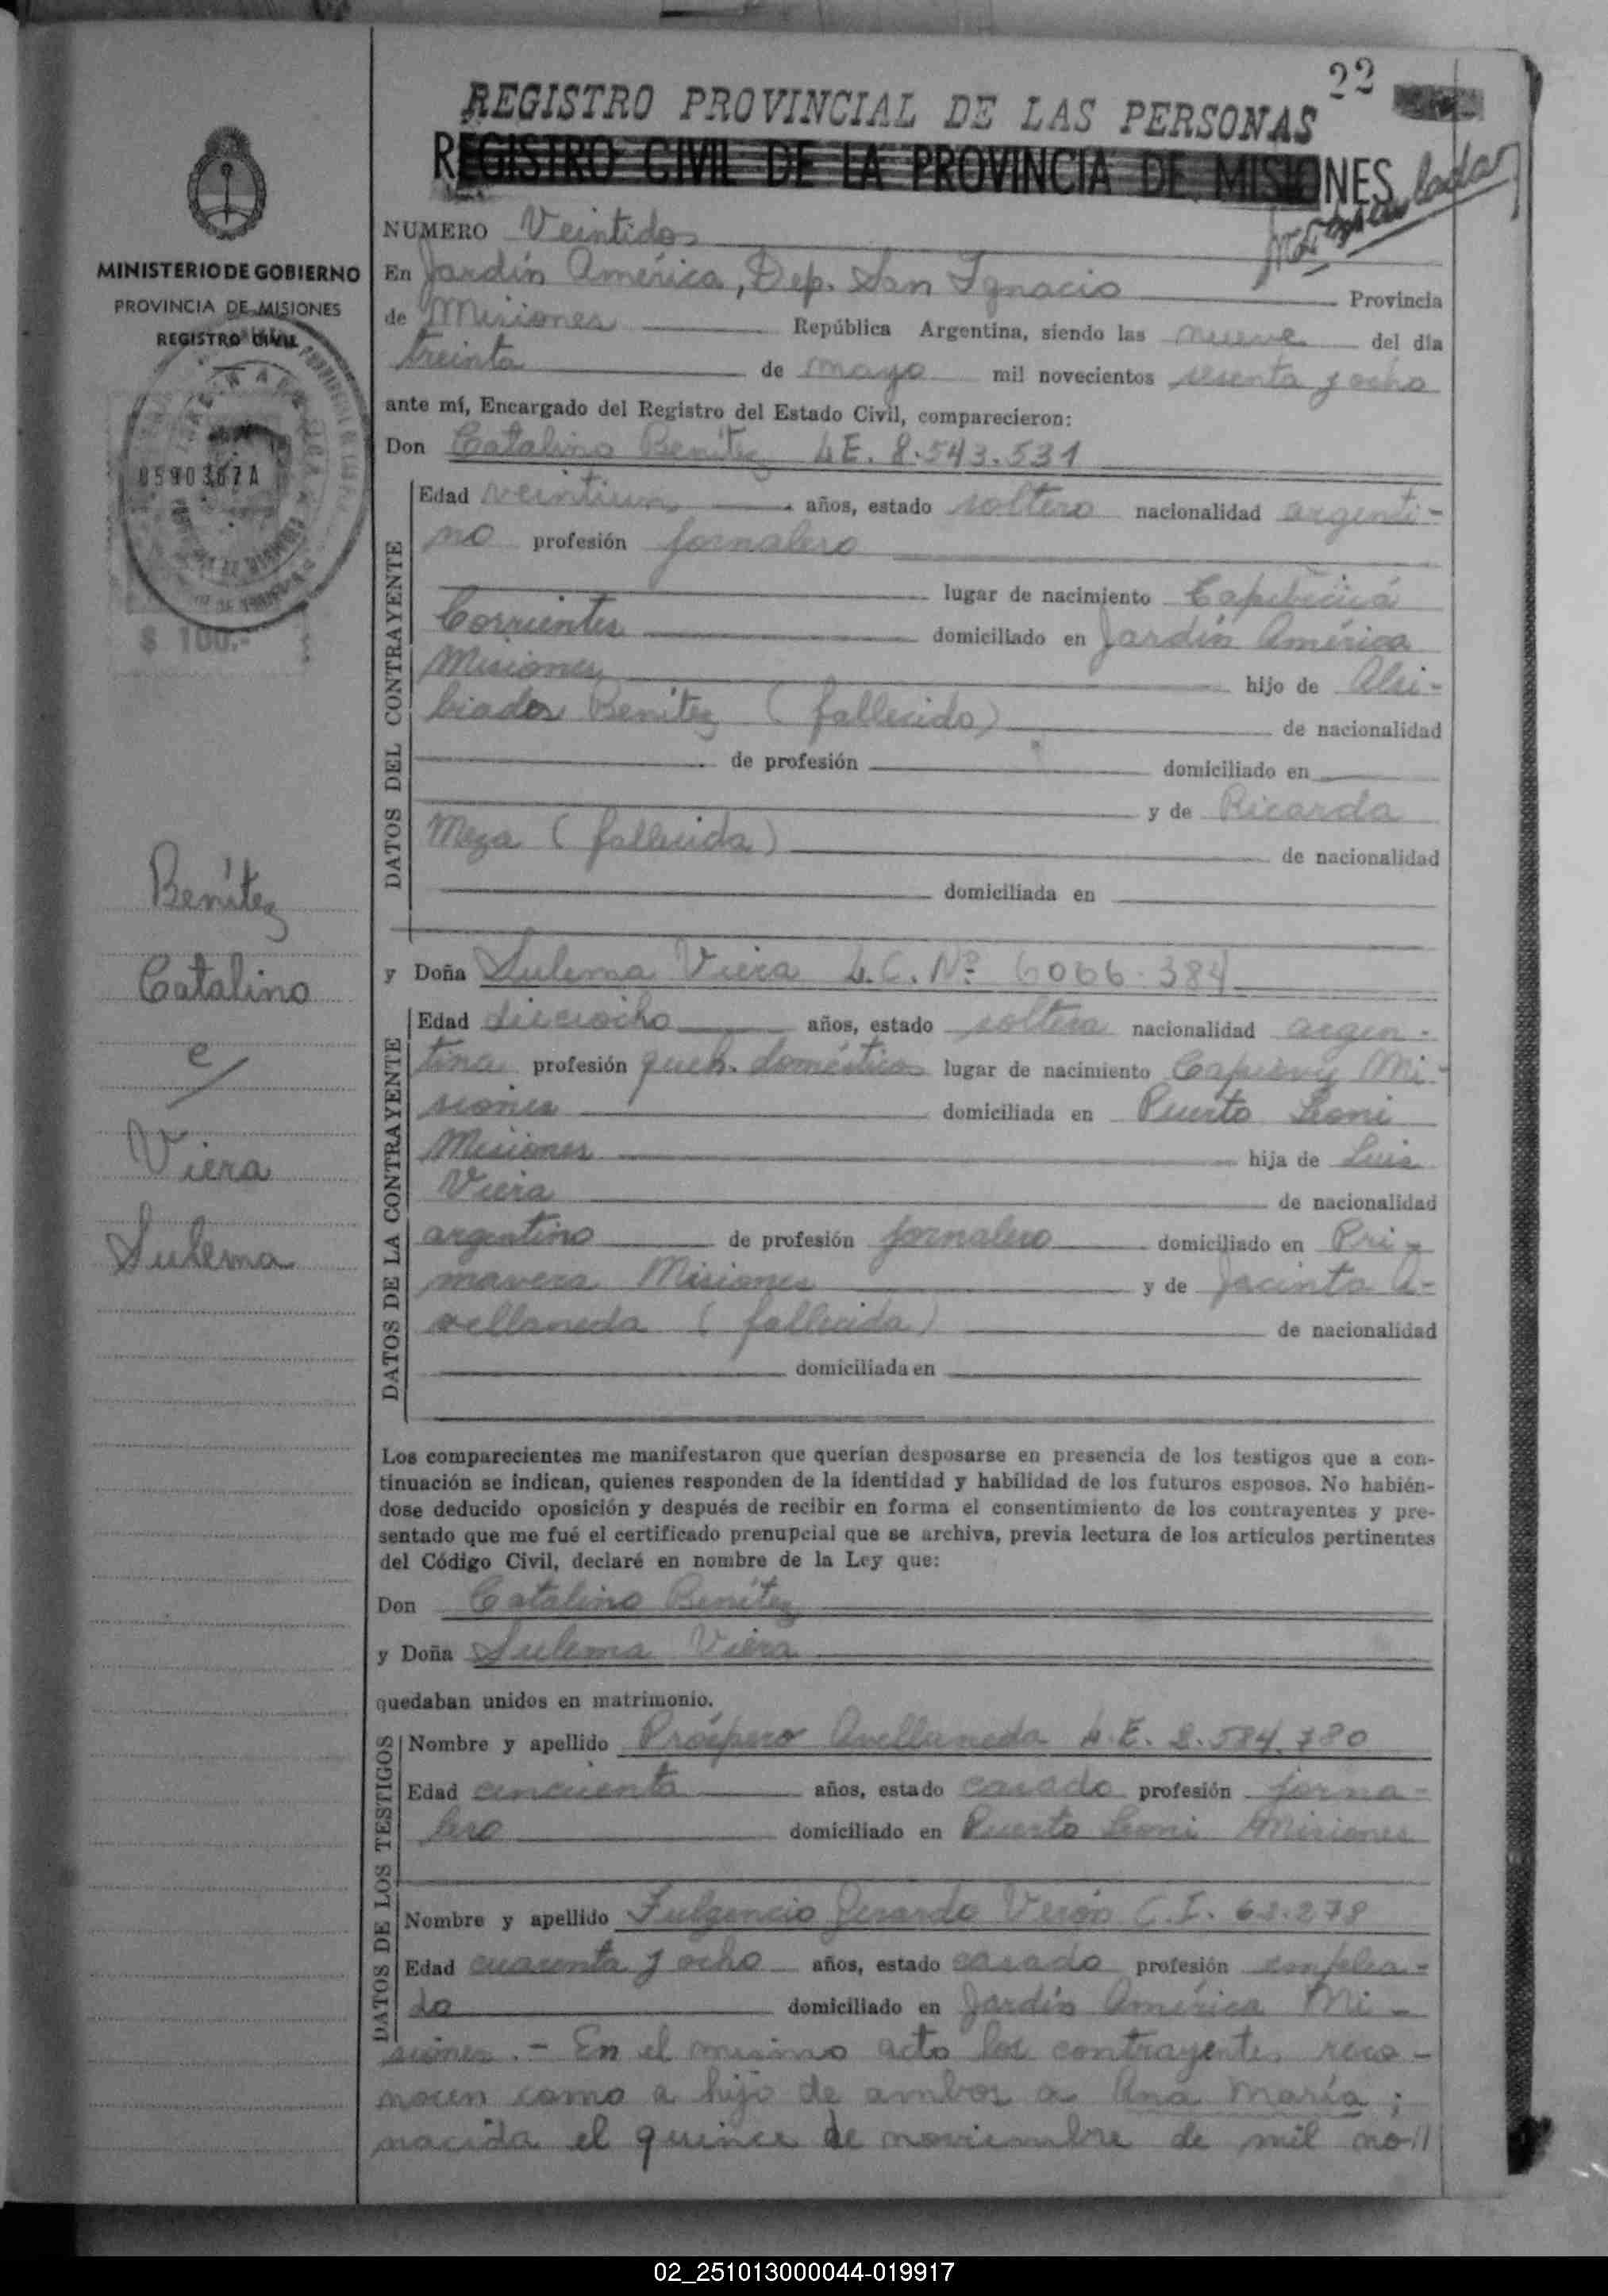 22
REGISTRO PROVINCIAL DE LAS PERSONAS
REGISTRO CIVIL DE LA PROVINCIA DE MISIONES
MINISTERIO DE GOBIERNO
PROVINCIA DE MISIONES
REGISTRO CIVIL
0590367A
$ 100.-
Benítez
Catalino
e/
Viera
Sulema
NUMERO Veintidos
En Jardín América, Dep. San Ignacio Provincia
de Misiones República Argentina, siendo las nueve del día
treinta de mayo mil novecientos sesenta y ocho
ante mí, Encargado del Registro del Estado Civil, comparecieron:
Don Catalino Benítez L.E. 8.543.531
DATOS DEL CONTRAYENTE
Edad veintiun años, estado soltero nacionalidad argenti-
no profesión jornalero
lugar de nacimiento
Corrientes domiciliado en Jardín América
Misiones hijo de Alci-
biades Benítez (fallecido) de nacionalidad
de profesión domiciliado en
y de Ricarda
Meza (fallecida) de nacionalidad
domiciliada en
y Doña Sulema Viera L.C. Nº 6066384
DATOS DE LA CONTRAYENTE
Edad dieciocho años, estado soltera nacionalidad argen-
tina profesión queh. domésticos lugar de nacimiento Capioví Mi-
siones domiciliada en Puerto Leoni
Misiones hija de Luis
Viera de nacionalidad
argentino de profesión jornalero domiciliado en Pri-
mavera Misiones y de Jacinta A-
vellaneda (fallecida) de nacionalidad
domiciliada en
Los comparecientes me manifestaron que querían desposarse en presencia de los testigos que a con-
tinuación se indican, quienes responden de la identidad y habilidad de los futuros esposos. No habién-
dose deducido oposición y después de recibir en forma el consentimiento de los contrayentes y pre-
sentado que me fué el certificado prenupcial que se archiva, previa lectura de los artículos pertinentes
del Código Civil, declaré en nombre de la Ley que:
Don Catalino Benítez
y Doña Sulema Viera
quedaban unidos en matrimonio.
DATOS DE LOS TESTIGOS
Nombre y apellido Próspero Avellaneda L.E. 2.584.780
Edad cincuenta años, estado casado profesión jorna-
lero domiciliado en Puerto Leoni Misiones
Nombre y apellido Fulgencio Gerardo Verón C.I. 62.278
Edad cuarenta y ocho años, estado casado profesión emplea-
do domiciliado en Jardín América Mi-
siones.- En el mismo acto los contrayentes reco-
nocen como a hijo de ambos a Ana María;
nacida el quince de noviembre de mil no//
02_251013000044-019917